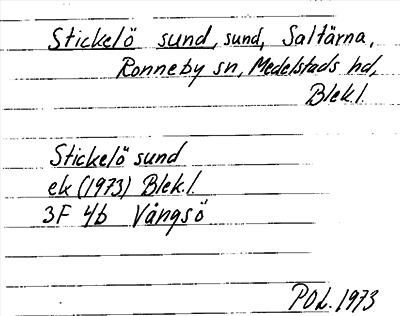 Stickelö sund, sund, Saltärna,
Ronneby sn, Medelstads hd,
Blek.l.
Stickelö sund
ek (1973) Blek.l.
3F 4b Vångsö
POL. 1973